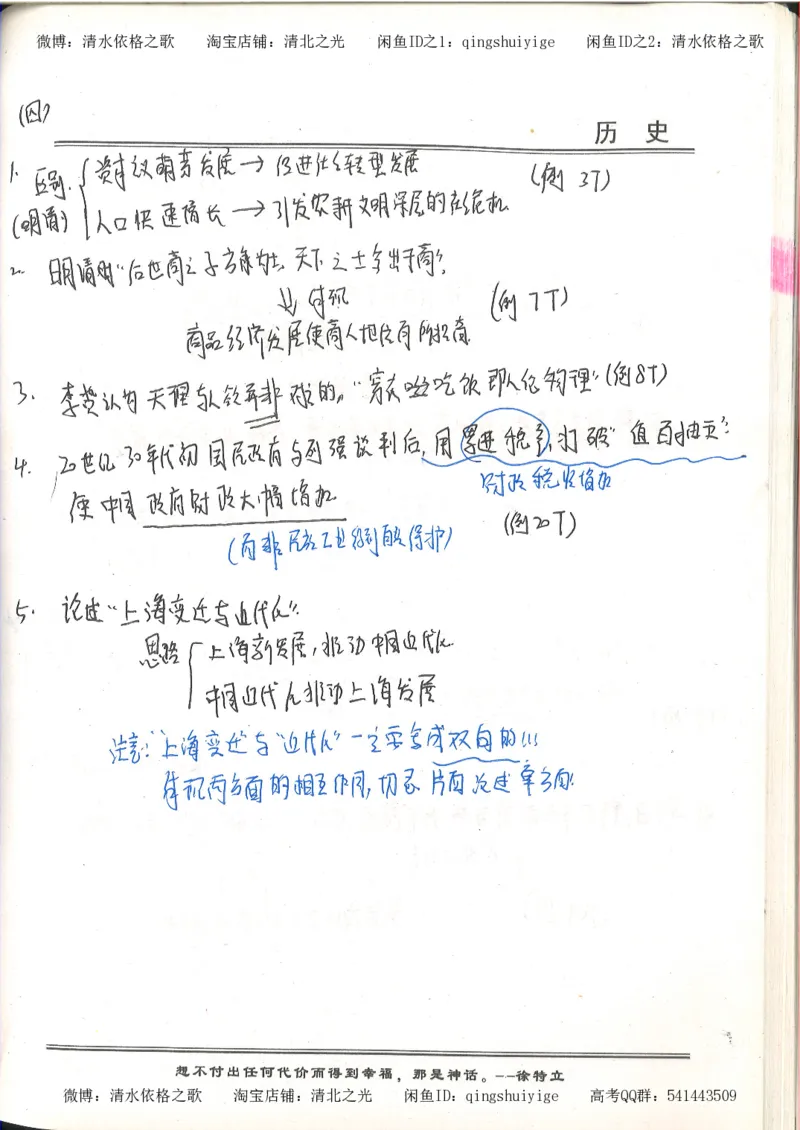 微博：清水依格之歌 淘宝店铺：清北之光 闲鱼ID之1：qingshuiyige 闲鱼ID之2：清水依格之歌
(四)
历 史
1. 区别 资本主义萌芽发展→促进社会转型发展 (例 3T)
(明清) 人口快速增长→引发农耕文明深层的存在危机
2. 明清时"后世商之子方能为士，天下之士多出于商"，
⇓体现 (例 7T)
商品经济发展使商人地位有所提高
3. 李贽认为天理与人欲并非对立的。"穿衣吃饭即人伦物理"(例8T)
4. 20世纪30年代初国民政府与列强谈判后，用累进税率打破"值百抽五"：
财政税收增加
使中国政府财政大幅增加
(而非民族工业得到有效保护) (例20T)
5. 论述"上海变迁与近代化"：
思路 上海新发展，推动中国近代化
中国近代化推动上海发展
注意："上海变迁与"近代化"一定要写成双向的!!!
体现两方面的相互作用，切忌片面论述单方面!
想不付出任何代价而得到幸福，那是神话。--徐特立
微博：清水依格之歌 淘宝店铺：清北之光 闲鱼ID：qingshuiyige 高考QQ群：541443509